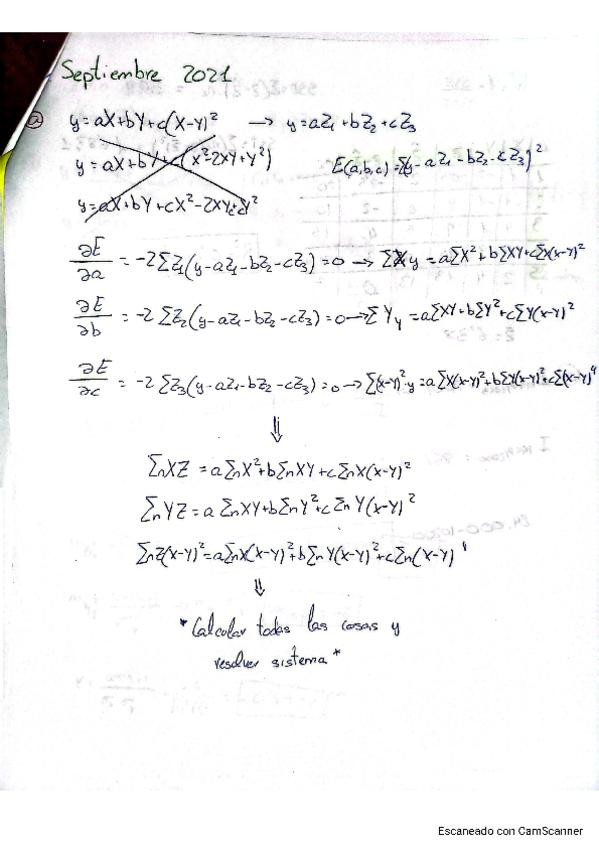 Septiembre 2021
a) y=aX+bY+c(X-Y)² → y=aZ₁+bZ₂+cZ₃
y=aX+bY+c(X²-2XY+Y²) E(a,b,c)=Σ(y-aZ₁-bZ₂-cZ₃)²
y=aX+bY+cX²-2XYc+cY²
∂E/∂a = -2ΣZ₁(y-aZ₁-bZ₂-cZ₃)=0 → ΣXy = aΣX²+bΣXY+cΣX(X-Y)²
∂E/∂b = -2ΣZ₂(y-aZ₁-bZ₂-cZ₃)=0 → ΣYy = aΣXY+bΣY²+cΣY(X-Y)²
∂E/∂c = -2ΣZ₃(y-aZ₁-bZ₂-cZ₃)=0 → Σ(X-Y)²·y=aΣX(X-Y)²+bΣY(X-Y)²+cΣ(X-Y)⁴
⇓
ΣnXZ = aΣnX²+bΣnXY+cΣnX(X-Y)²
ΣnYZ = aΣnXY+bΣnY²+cΣnY(X-Y)²
ΣnZ(X-Y)²=aΣnX(X-Y)²+bΣnY(X-Y)²+cΣn(X-Y)⁴
⇓
*Calcular todas las cosas y
resolver sistema*
Escaneado con CamScanner